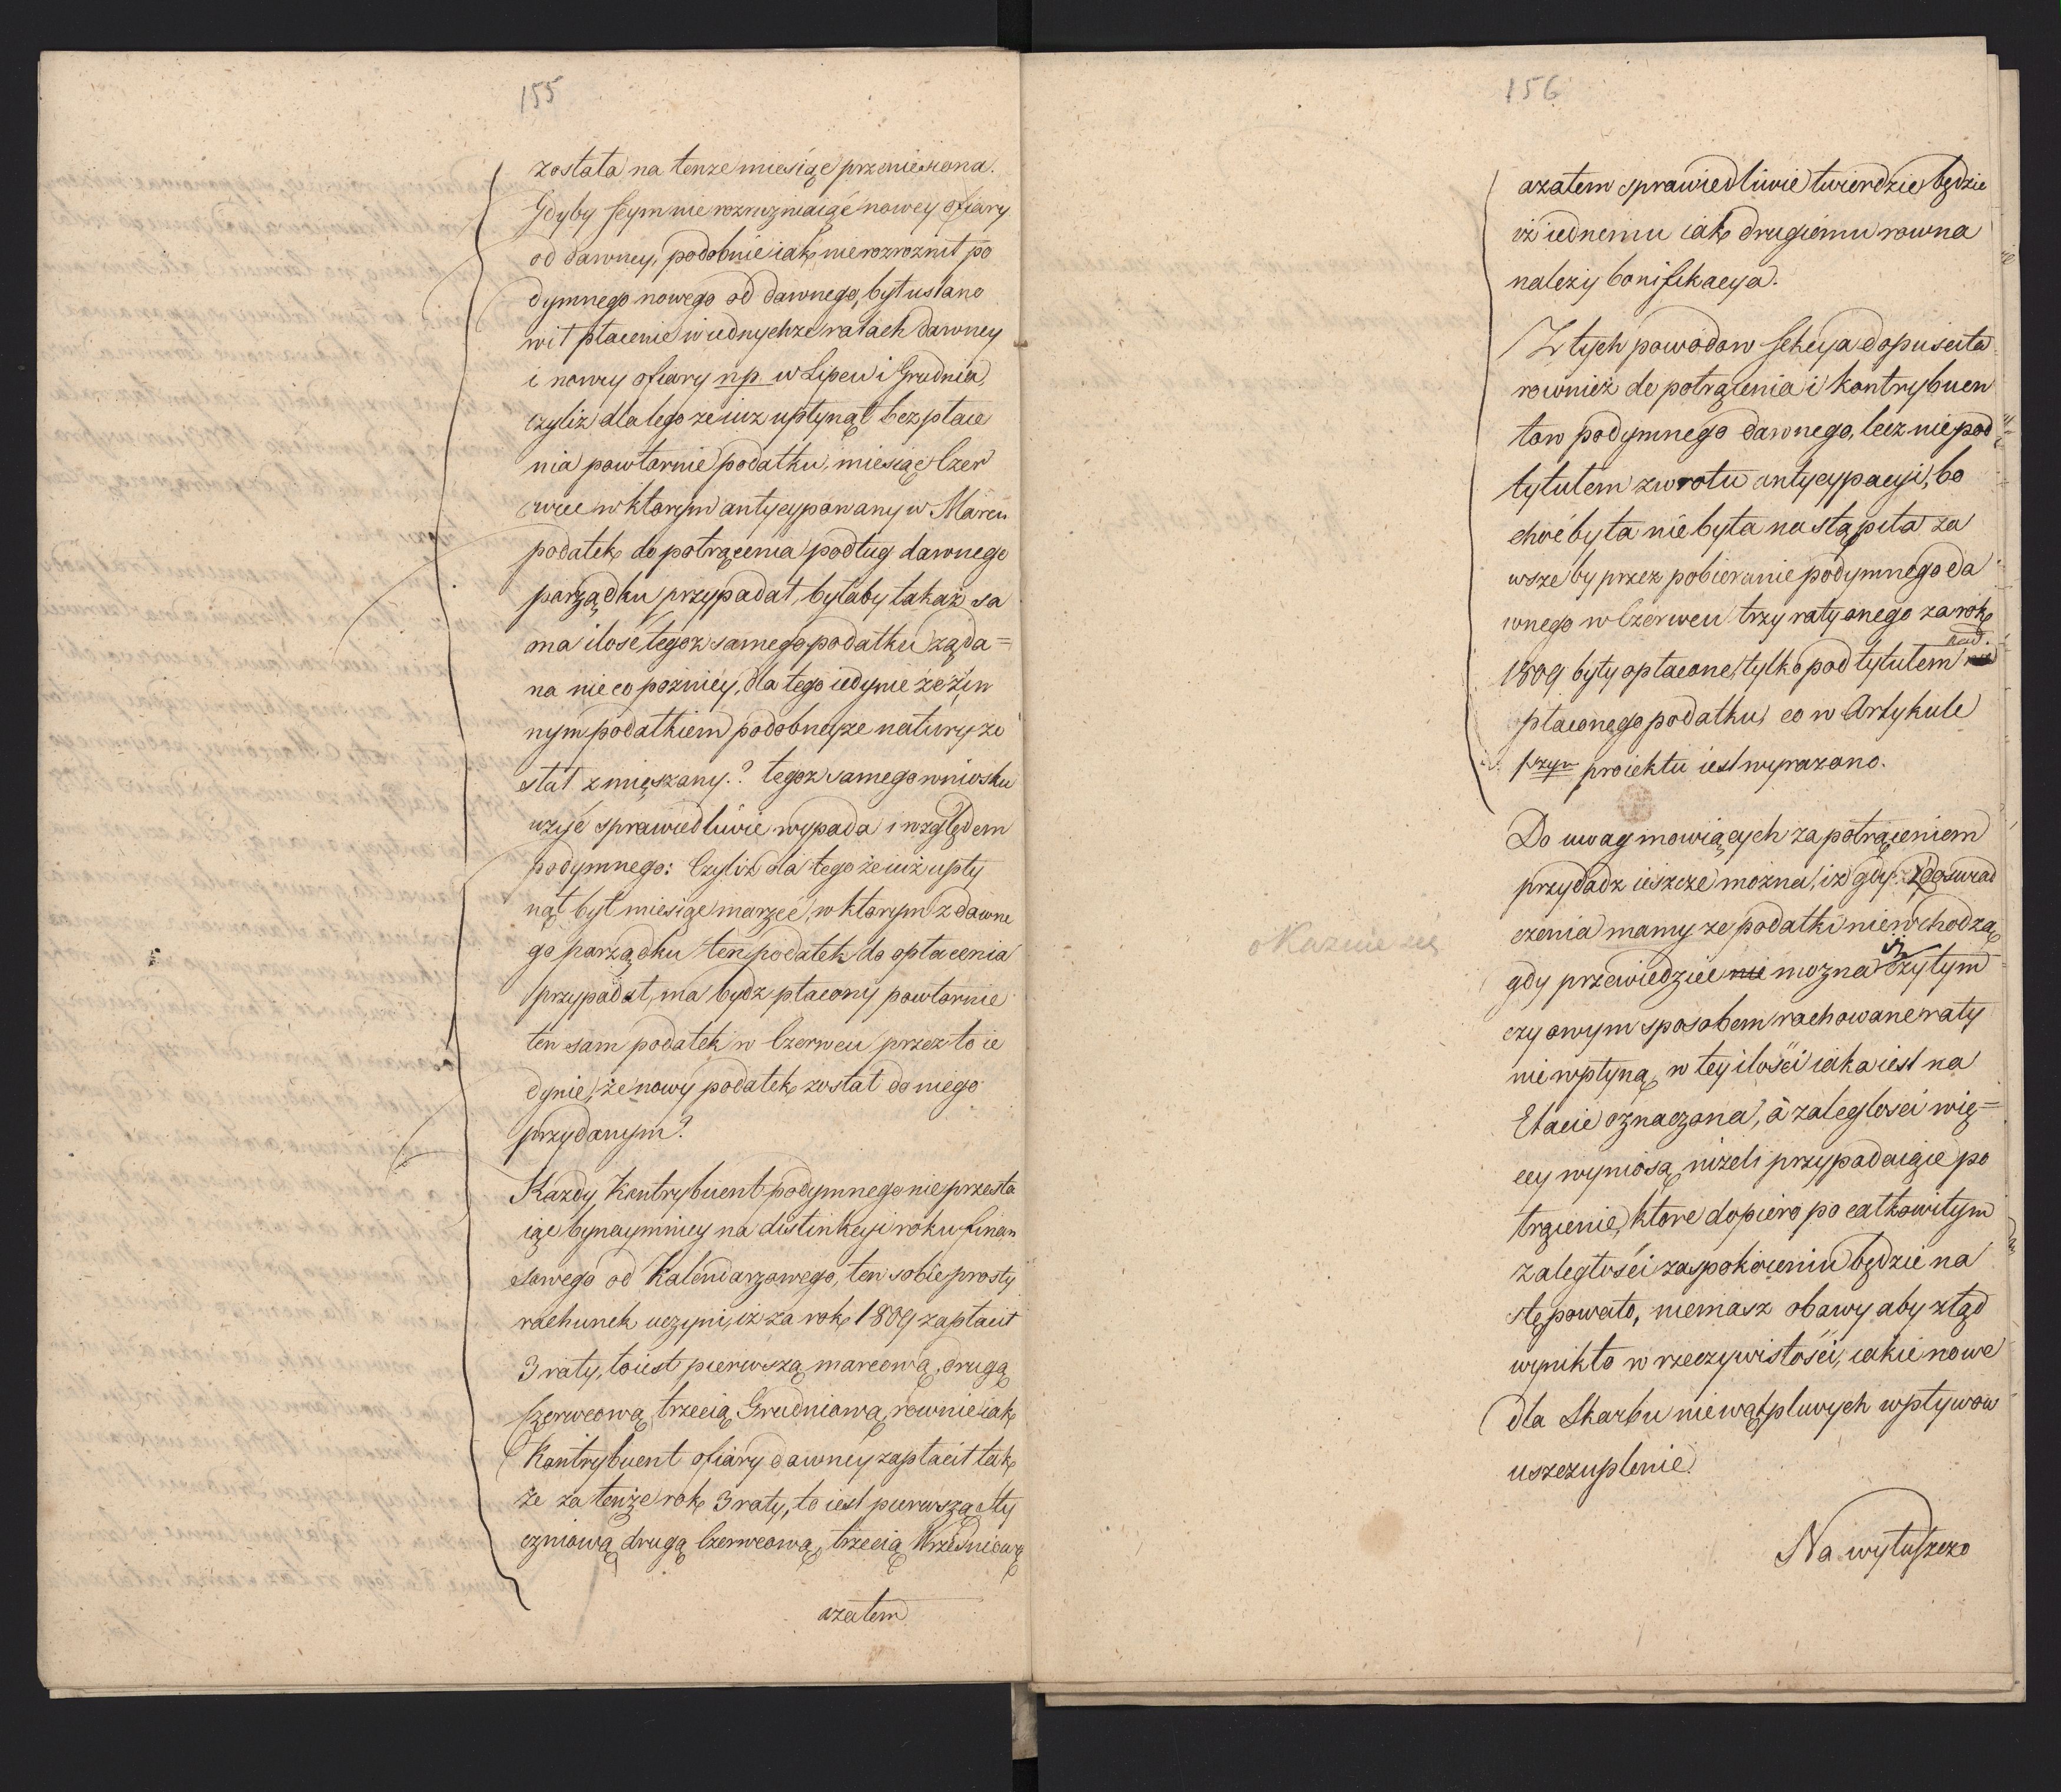 155
została na tenze miesiąc przeniesiona.
Gdyby Seym nie rozrozniaiąc nowey ofiary
od dawney, podobnie iak nierozroznił po
dymnego nowego od dawnego, był ustano
wił płacenie w iednychze ratach dawney
i nowey ofiary np. w Lipcu i Grudniu,
czyliz dla tego ze iuz upłynął bez płace
nia powtornie podatku, miesiąc Czer
wiec w ktorym antycypowany w Marcu
podatek do potrącenia podług dawnego
porządku przypadał, byłaby takaż sa
ma ilosc tegoz samego podatku ząda=
na nieco pozniéy, dla tego iedynie że z in
nym podatkiem podobneyze natury zo
stał zmięszany? tegoz samego wniosku
użyć sprawiedliwie wypada i względem
podymnego: Czyliż dla tego że iuż upły
nął był miesiąc marzec, w ktorym z dawne
go porządku ten podatek do opłacenia
przypadał, ma bydz płacony powtornie
ten sam podatek w Czerwcu przez to ie
dynie, że nowy podatek został do niego
przydanym?
Kazdy Kontrybuent podymnego nie przesta
iąc bynaymniey na distinkcyi roku finan
sowego od Kalendarzowego, ten sobie prosty
rachunek uczyni, iż za rok 1809 zapłacił
3 raty, to iest pierwszą marcową, drugą
Czerwcową, trzecią Grudniową, rownie iak
Kontrybuent ofiary dawney zapłacił tak
że za tenże rok 3 raty, to iest pierwszą Sty
czniową drugą Czerwcową, trzecią Wrześniową
azatem
156
azatem sprawiedliwie twierdzić będzie
iż iednemu iak drugiemu rowna
należy bonifikacya.
Z tych powodow Sekcya dopuściła
rownież do potrącenia i kontrybuen
tow podymnego dawnego, lecz nie pod
tytułem zwrotu antycypacyi, bo
choćby ta nie była nastąpiła za
wsze by przez pobieranie podymnego da
wnego w Czerwcu trzy raty onego za rok
1809 były opłacone, tylko pod tytułem nad
płaconego podatku, co w Artykule
1szym proiektu iest wyrazono.
Do uwag mowiących za potrąceniem
przydadz ieszcze można, iż gdy z doswiad
czenia mamy ze podatki niewchodzą
gdy przewiedziec nie mozna iż czy tym
czy owym sposobem rachowane raty
nie wpłyną, w tey ilości iaka iest na
Etacie oznaczona, à zaległosci wię=
cey wyniosą, niżeli przypadaiące po
trącenie, ktore dopiero po całkowitym
zaległości zaspokoieniu będzie na
stępowało, niemasz obawy aby ztąd
wynikło w rzeczywistości, iakie nowe
dla Skarbu niewątpliwych wpływow
uszczuplenie.
Na wyłuszczo